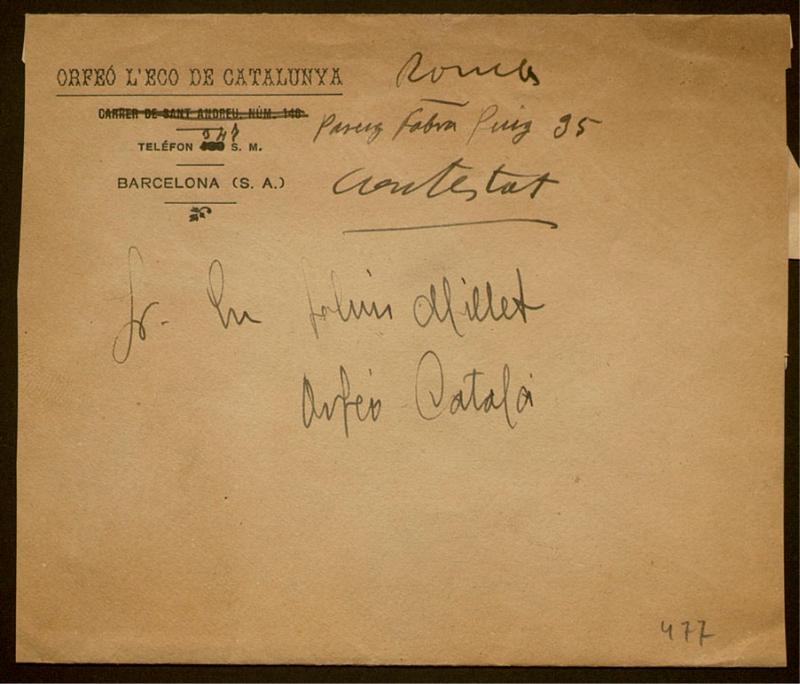 ORFEÓ L'ECO DE CATALUNYA
CARRER DE SANT ANDREU, NÚM. 146
Passeig Fabra Puig 35
TELÉFON S. M.
BARCELONA (S. A.)
Contestat
Sr. En Millet
Orfeó Català
477